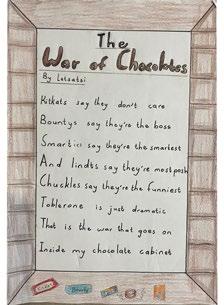 The
War of Chocolates
By Letsatsi
Kitkats say they don't care
Bountys say they're the boss
Smarties say they're the smartest
And lindts say they're most posh
Chuckles say they're the funniest
Toblerone is just dramatic
That is the war that goes on
Inside my chocolate cabinet
Bounty